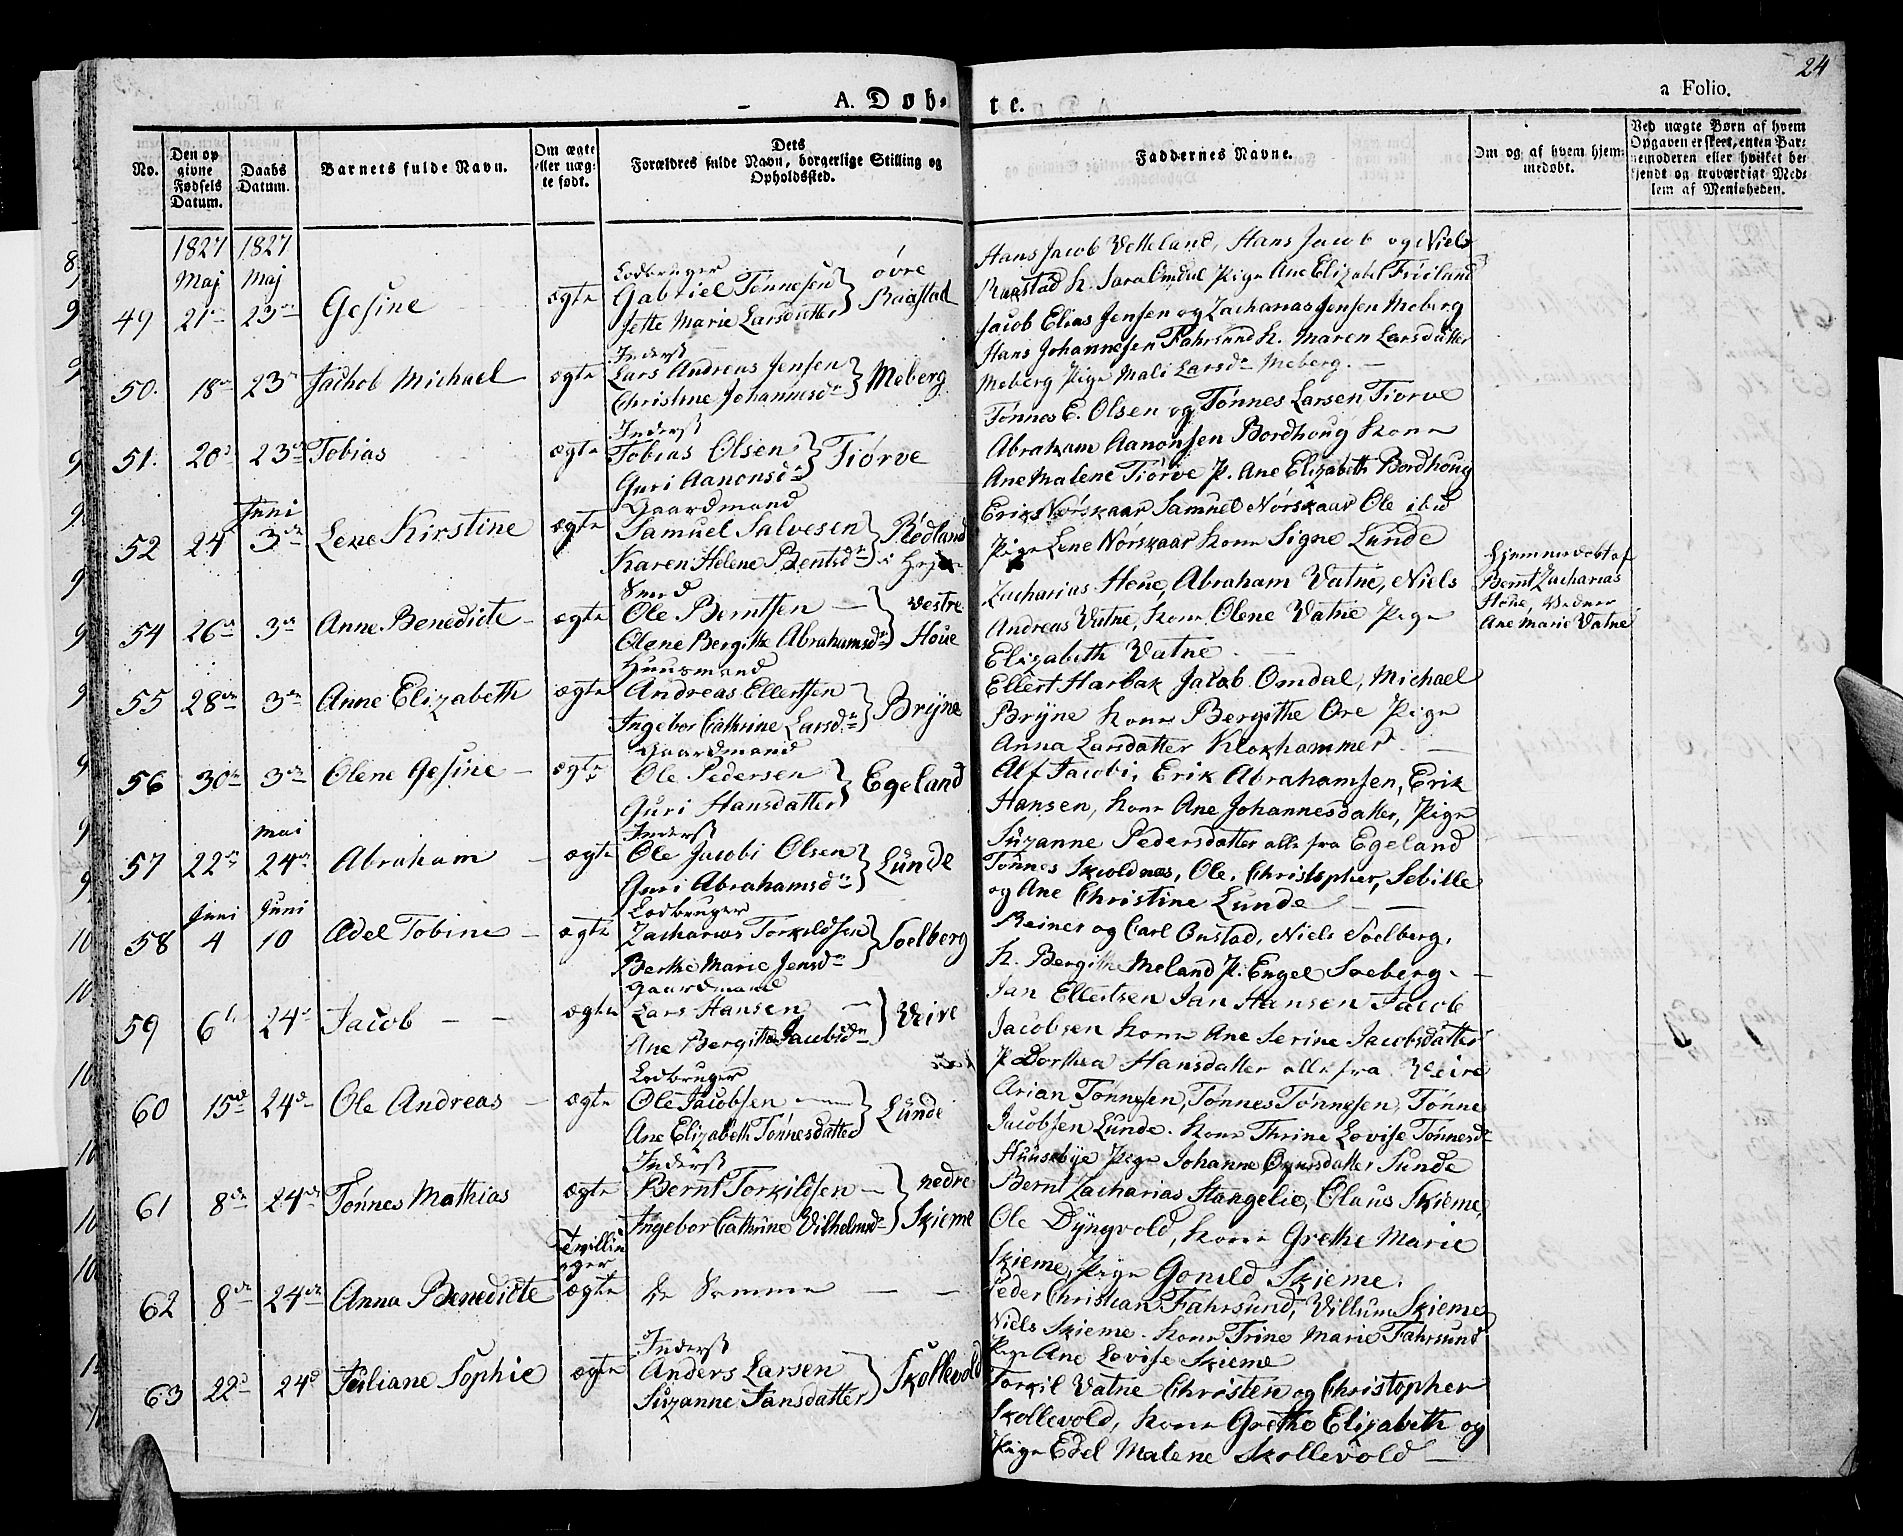 24
A. Døb-
te.
a Folio.
No.
Den op
givne
Fødsels
Datum.
Daabs
Datum.
Barnets fulde Navn.
Om ægte
eller uæg-
te født.
Dets
Forældres fulde Navn, borgerlige Stilling og
Opholdssted.
Faddernes Navne.
Om og af hvem hjem-
medøbt.
Ved uægte Børn af hvem
Opgaven er skeet, enten Bar-
nemoderen eller hvilket be-
kjendt og troværdigt Med-
lem af Menigheden.
1827 1827
Maj Maj
49 21 23 Gesine ægte
Lodbruger
Gabriel Tønnesen
Jette Marie Larsdatter
øvre
Raastad
Hans Jacob Vetteland, Hans Jacob og Niels
Raastad K. Sara Omdal Pige Ane Elizabet Friland
50. 18 23 Jachob Michael ægte
Inderst
Lars Andreas Jensen
Christine Johannesd
Meberg
Jacob Elias Jensen og Zacharias Jensen Meberg
Hans Johannesen Fahrsund K. Maren Larsdatter
Meberg Pige Mali Larsd Meberg. —
51. 20 23 Tobias ægte
Inderst
Tobias Olsen
Guri Aanonsd
Tiørve
Tønnes E. Olsen og Tønnes Larsen Tiørve
Abraham Aanonsen Bordhoug Kone
Ane Malene Tiørve P. Ane Elizabeth Bordhoug
Juni
52 24 3 Lene Kirstine ægte
Gaardmand
Samuel Salvesen
Karen Helene Bentsd
Rødland
i
Erik Nørskaar Samuel Nørskaar Ole ibid
Pige Lene Nørskaar Kone Signe Lunde
54 26 3 Anne Benedicte — ægte
Smed
Ole Berntsen —
Olene Bergitte Abrahamsd
Vestre
Houe
Zacharias Houe, Abraham Vatne, Niels
Andreas Vatne, Kone Olene Vatne Pige
Elizabeth Vatne
Hjemmedøbt af
Bernt Zacharias
Houe, Vidner
Ane Marie Vatne
55 28 3 Anne Elizabeth ægte
Huusmand
Andreas Ellertsen —
Ingebor Cathrine Larsd
Brÿne
Ellert Harbak Jacob Omdal, Michael
Brÿne Kone Bergithe Ore Pige
Anna Larsdatter Klokhammer. —
56 30 3 Olene Gesine — ægte
Gaardmand
Ole Pedersen
Guri Hansdatter
Egeland
Alf Jacobi, Erik Abrahamsen, Erik
Hansen, Kone Ane Johannesdatter, Pige
Suzanne Pedersdatter alle fra Egeland
Mai
57 22 24 Abraham — ægte
Inderst
Ole Jacobi Olsen
Guri Abrahamsd
Lunde
Tønnes Skoldnes, Ole, Christopher, Sebille
og Ane Christine Lunde — —
Juni Juni
58 4 10 Ædel Tobine — ægte
Lodbruger
Zacharias Torkildsen
Berthe Marie Jensd
Soelberg
Reiner og Carl Onstad, Niels Soelberg,
K. Bergitte Meland P. Engel Soeberg —
59 6 24 Jacob — — ægte
Gaardmand
Lars Hansen —
Ane Bergitte Jacobsd
Veire
Jan Ellertsen Jan Hansen Jacob
Jacobsen Kone Ane Serine Jacobsdatter
P Dorthea Hansdatter alle fra Veire
60 15 24 Ole Andreas — ægte
Lodbruger
Ole Jacobsen
Ane Elizabeth Tønnesdatter
Lunde
Arian Tønnesen, Tønnes Tønnesen, Tønne
Jacobsen Lunde. Kone Thrine Lovise Tønnesd
Huusebÿe Pige Johanne Lunde
61 8 24 Tønnes Mathias ægte
Inderst
Bernt Torkildsen —
Ingebor Cathrine Vilhelmsd
nedre
Skieme
Bernt Zacharias Stangelie, Olaus Skieme,
Ole Dÿngvold, Kone Grethe Marie
Skieme, Pige Gonild Skieme.
Tvillin
ger
62 8 24 Anna Benedicte ægte
De Samme — —
Peder Christian Fahrsund, Villum Skieme
Niels Skieme. Kone Trine Marie Fahrsund
Pige Ane Lovise Skieme
63 22 24 Juliane Sophie ægte
Inderst
Anders Larsen
Suzanne Jansdatter
Skollevold
Torkil Vatne Christen og Christopher
Skollevold, Kone Grethe Elizabeth og
Pige Edel Malene Skollevold —